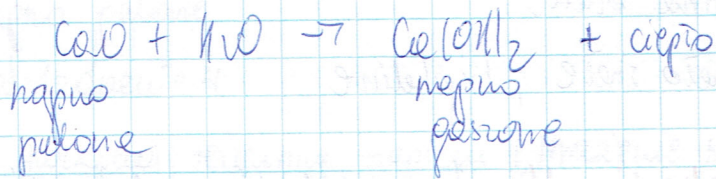 CaO + H₂O → Ca(OH)₂ + ciepło
wapno wapno
palone gaszone